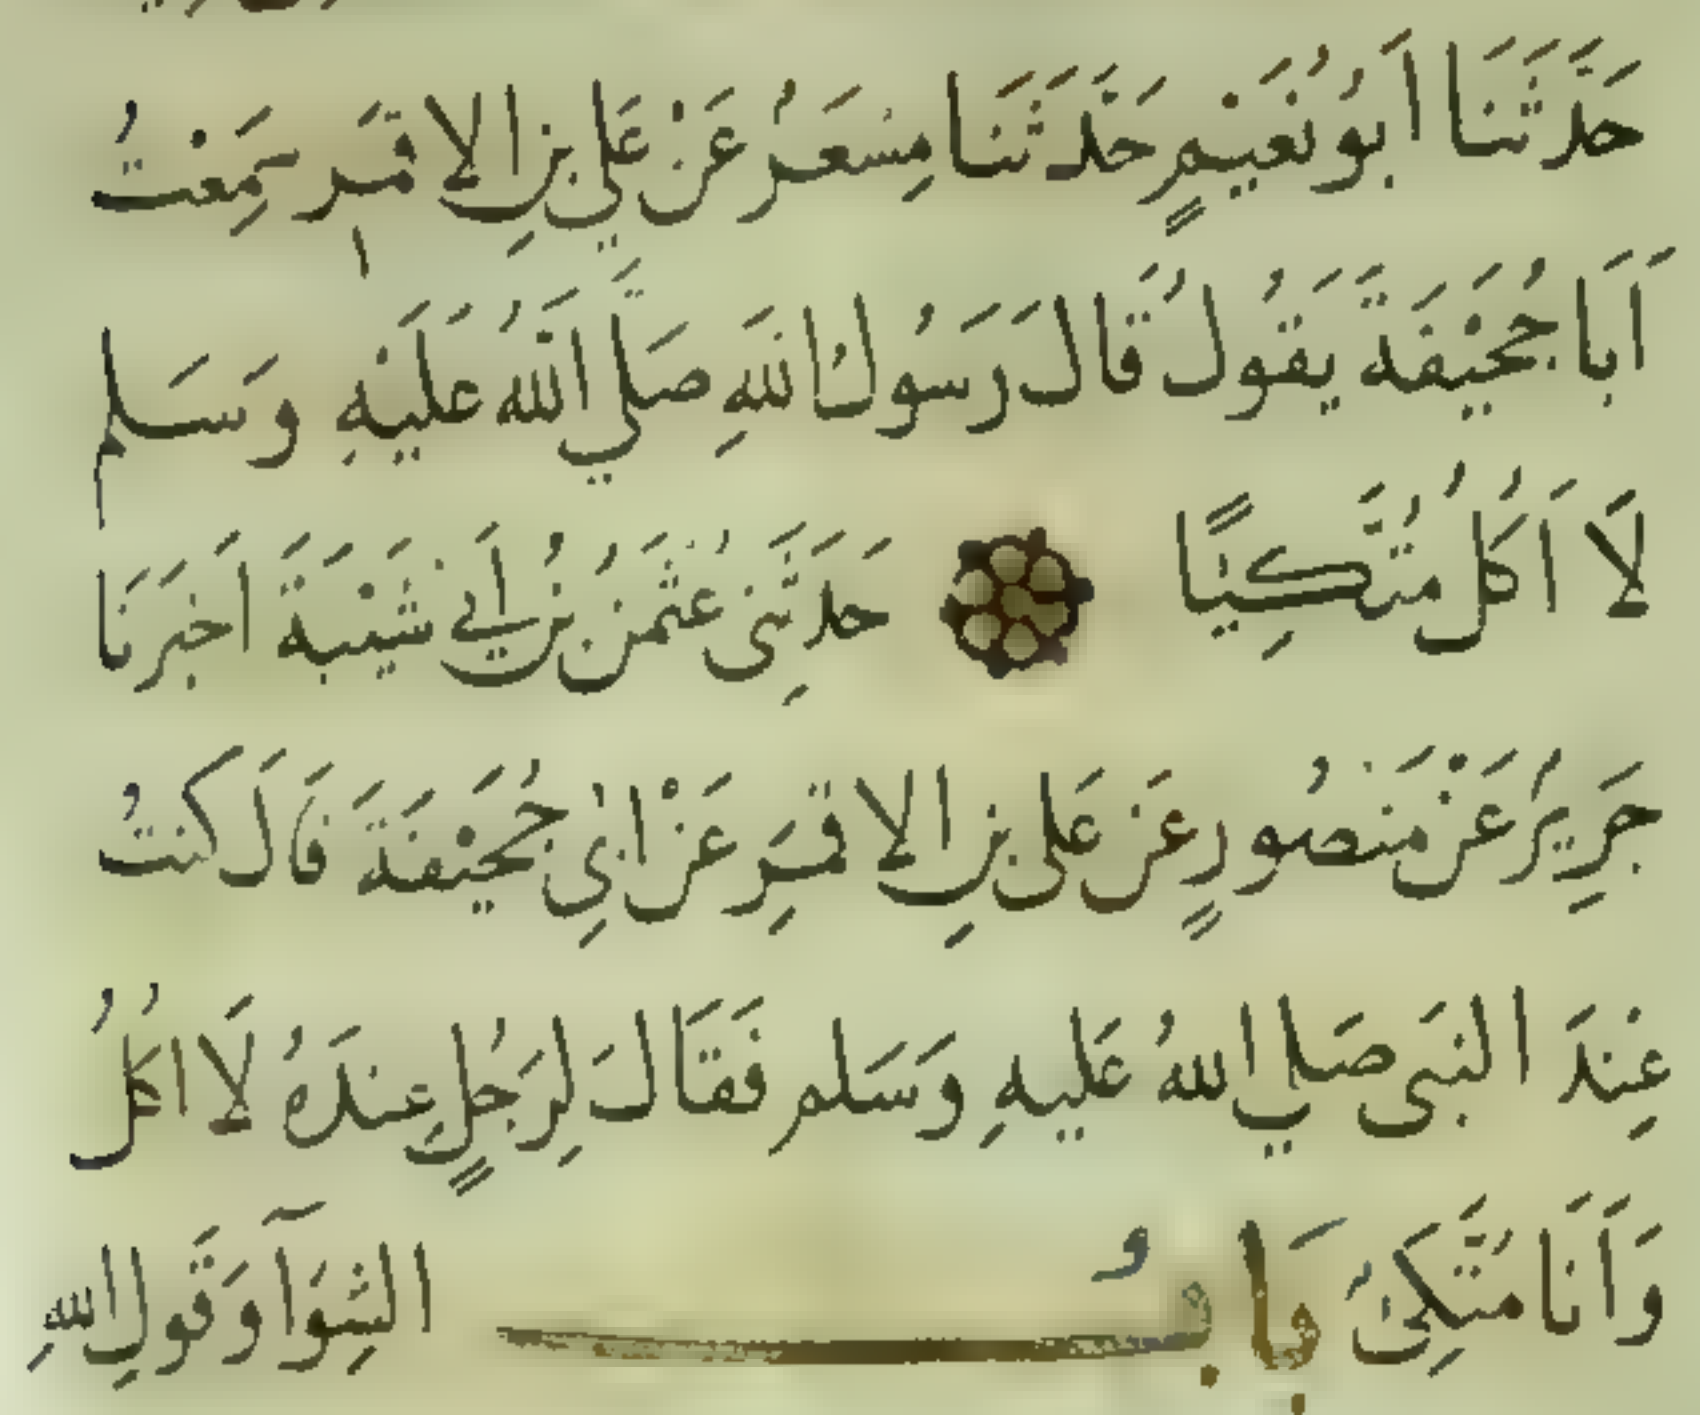 حَدَّثَنَا اَبُو نُعَيْمٍ حَدَّثَنَا مِسْعَرُ عَنْ عَلِي بنِ الاقمَرِ سَمِعْتُ
اَبَا جُحَيْفَةَ يَقُولُ قَالَ رَسُولُ اللهِ صَلَّي اللهُ عَلَيْهِ وَسَلم
لَا اَكُلُ مُتَّكِيًا حَدَثَّنِى عُثْمَنُ بنُ اَبِي شَيْبَةَ اَخبَرَنَا
جَرِيرُ عَنْ مَنصُورٍ عَن عَلى بنِ الاقمَرِ عَنْ ابِى جُحَيْفَةَ قَالَ كنتُ
عِندَ النبَى صَلي اللهُ عَليهِ وَسَلم فَقَالَ لِرَجُلٍ عِندَهُ لَا اكُلُ
وَاَنَا مُتَّكِئ بَابُ الشِوَآ وَقَولِ اللهِ